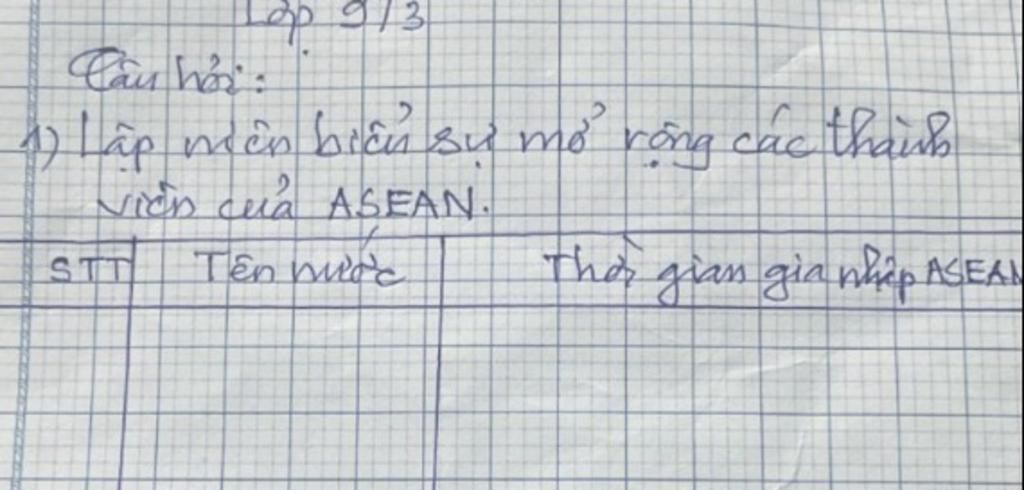 Lớp 9/3
Câu hỏi:
1) Lập niên biểu sự mở rộng các thành
viên của ASEAN.
STT Tên nước Thời gian gia nhập ASEAN